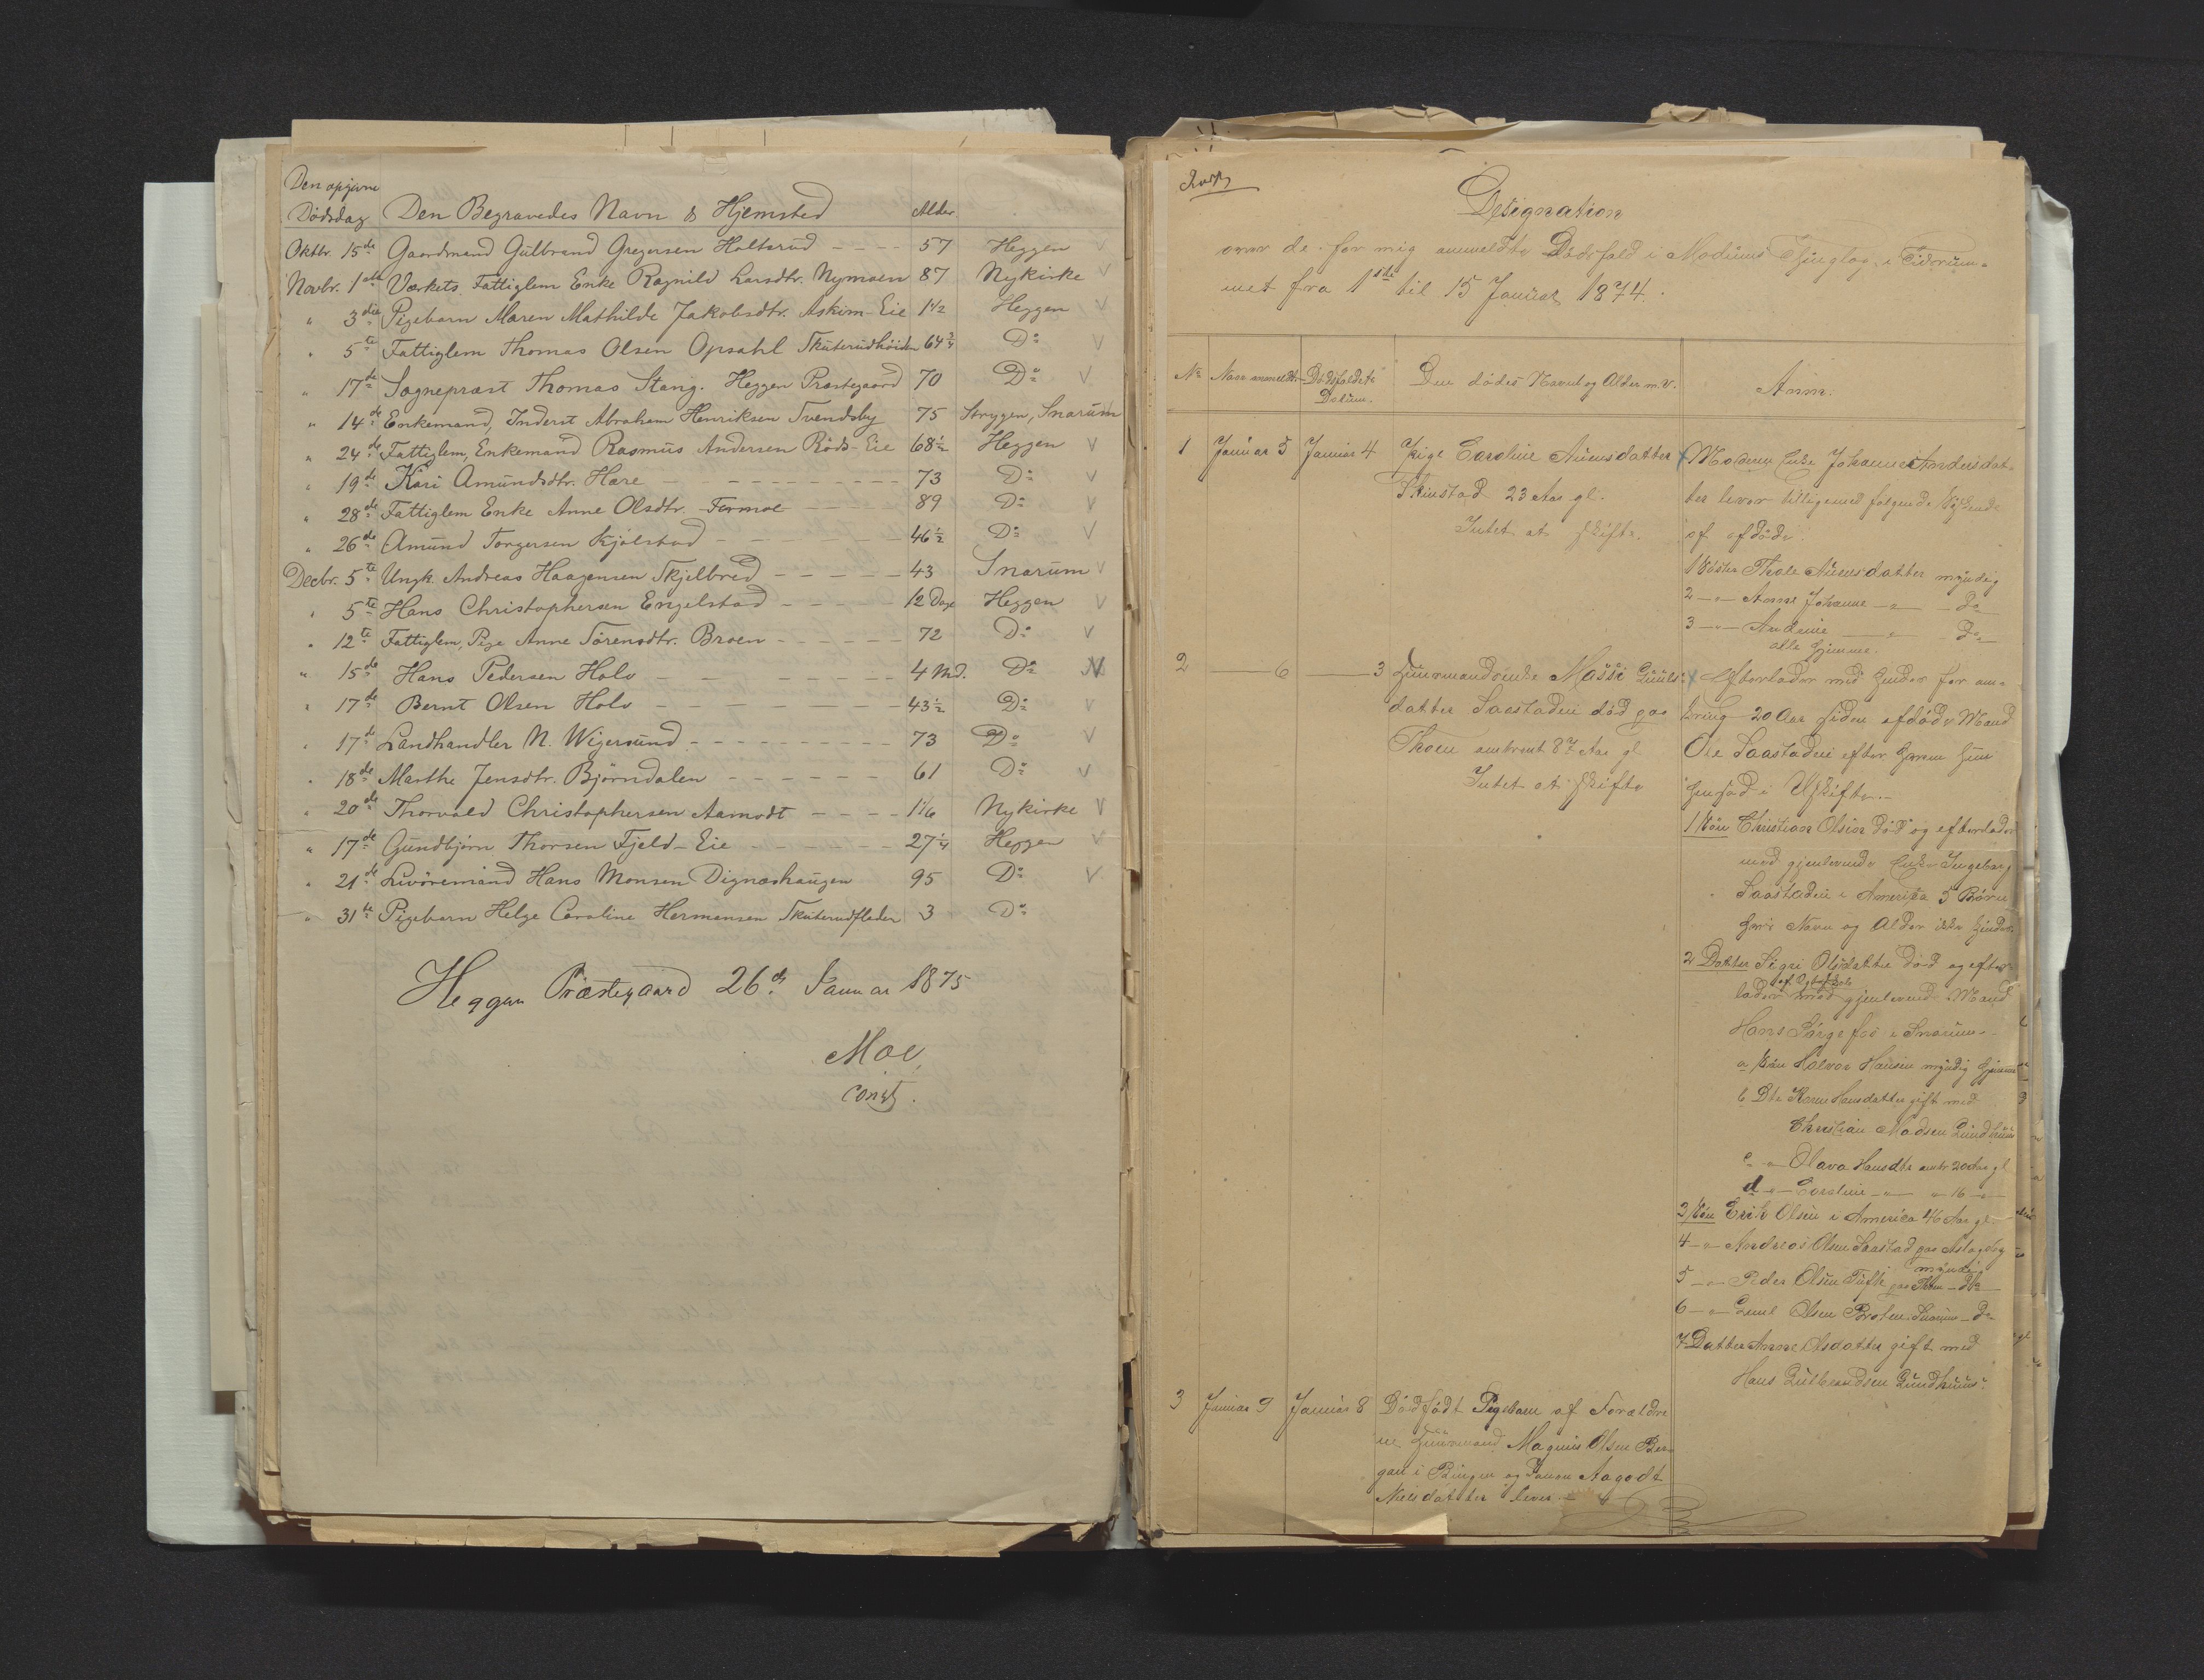 Den opgivne
Dødsdag Den Begravedes Navn & Hjemsted Alder
Oktbr. 15de Gaardmand Gulbrand Gregersen Holterud 57 Heggen
Novbr. 1ste Værkets Fattiglem Enke Ragnild Larsdtr. Nymoen 87 Nykirke
" 3die Pigebarn Maren Mathilde Jakobsdtr. Askim-Eie 1 1/2 Heggen
" 5te Fattiglem Thomas Olsen Opsahl Skuterudhöiden 64 3/4 Do
" 17de Sognepræst Thomas Stang. Heggen Præstegaard 70 Do
" 14de Enkemand, Inderst Abraham Henriksen Svendsby 75 Strygen, Snarum
" 24de Fattiglem, Enkemand Rasmus Andersen Röds-Eie 68 1/2 Heggen
" 19de Kari Amundsdtr. Hære 73 Do
" 28de Fattiglem Enke Anne Olsdtr. Formoe 89 Do
" 26de Amund Torgersen Kjölstad 46 1/2 Do
Decbr. 5te Ungk. Andreas Haagensen Skjelbred 43 Snarum
" 5te Hans Christophersen Engelstad 12 Dage Heggen
" 12te Fattiglem, Pige Anne Sörensdtr. Broen 72 Do
" 15de Hans Pedersen Holo 4 Md. Do
" 17de Bernt Olsen Holo 43 1/2 Do
" 17de Landhandler N. Wigersund 73 Do
" 18de Marthe Jensdtr. Björndalen 61 Do
" 20de Thorvald Christophersen Aamodt 1 1/6 Nykirke
" 17de Gundbjörn Thorsen Fjeld-Eie 27 1/4 Heggen
" 21de Livöremand Hans Monsen Dignæshaugen 95 Do
" 31te Pigebarn Helge Caroline Hermansen Skuterudfladen 3 Do
Heggen Præstegaard 26de Januar 1875
Moe
const.
Designation
over de for mig anmeldte Dødsfald i Modums Thinglag i Tidsrum-
met fra 1ste til 15 Januar 1874.
No Naar anmeldt Dødsfaldets Datum. Den dødes Navn og Alder m.v. Anm.
1 Januar 5 Januar 4 Pige Caroline Aunesdatter
Skinstad 23 Aar gl.
Intet at skifte.
Moderen Enke Johanne Andersdat-
ter lever tilligemed følgende Söskende
af afdöde.
1 Söster Thale Aunesdatter myndig
2 — " — Anne Johanne — " — Do
3 — " — Andrine — " — Do
alle hjemme.
2 — 6 — 3 Huusmandsenke Massi Guuls-
datter Saastadeie död paa
Thoen omtrent 87 Aar gl
Intet at skifte
Efterlader med hendes for om-
kring 20 Aar siden afdöde Mand
Ole Saastadeie efter hvem hun
hensad i Uskifte.
1 Sön Christian Olsen död og efterlader
med gjenlevende Enke Ingeborg
Saastadeie i Amerika 5 Börn
hvis Navn og Alder ikke kjendes
2 Datter Sigri Olsdatter död og efter-
lader med gjenlevende Mand
Hans Sörgefos i Snarum
a Sön Halvor Hansen myndig hjemme
b Dtr Karen Hansdatter gift med
Christian Madsen Lindhuus
c — " — Olava Hansdtr omtr 20 Aar gl
d — " — Caroline — " — " 16 — " —
3 Sön Erik Olsen i America 46 Aar gl.
4 — " — Andreas Olsen Saastad paa Aslagsby
myndig
5 — " — Peder Olsen Tufte paa Thoen — Do
6 — " — Guul Olsen Braten Snarum — Do
7 Datter Anne Olsdatter gift med
Hans Gulbrandsen Lundhuus.
3 Januar 9 Januar 8 Dödfödt Pigebarn af Forældre
ne Huusmand Magnus Olsen Ber-
gan i Bingen og Konen Aagodt
Nielsdatter lever.